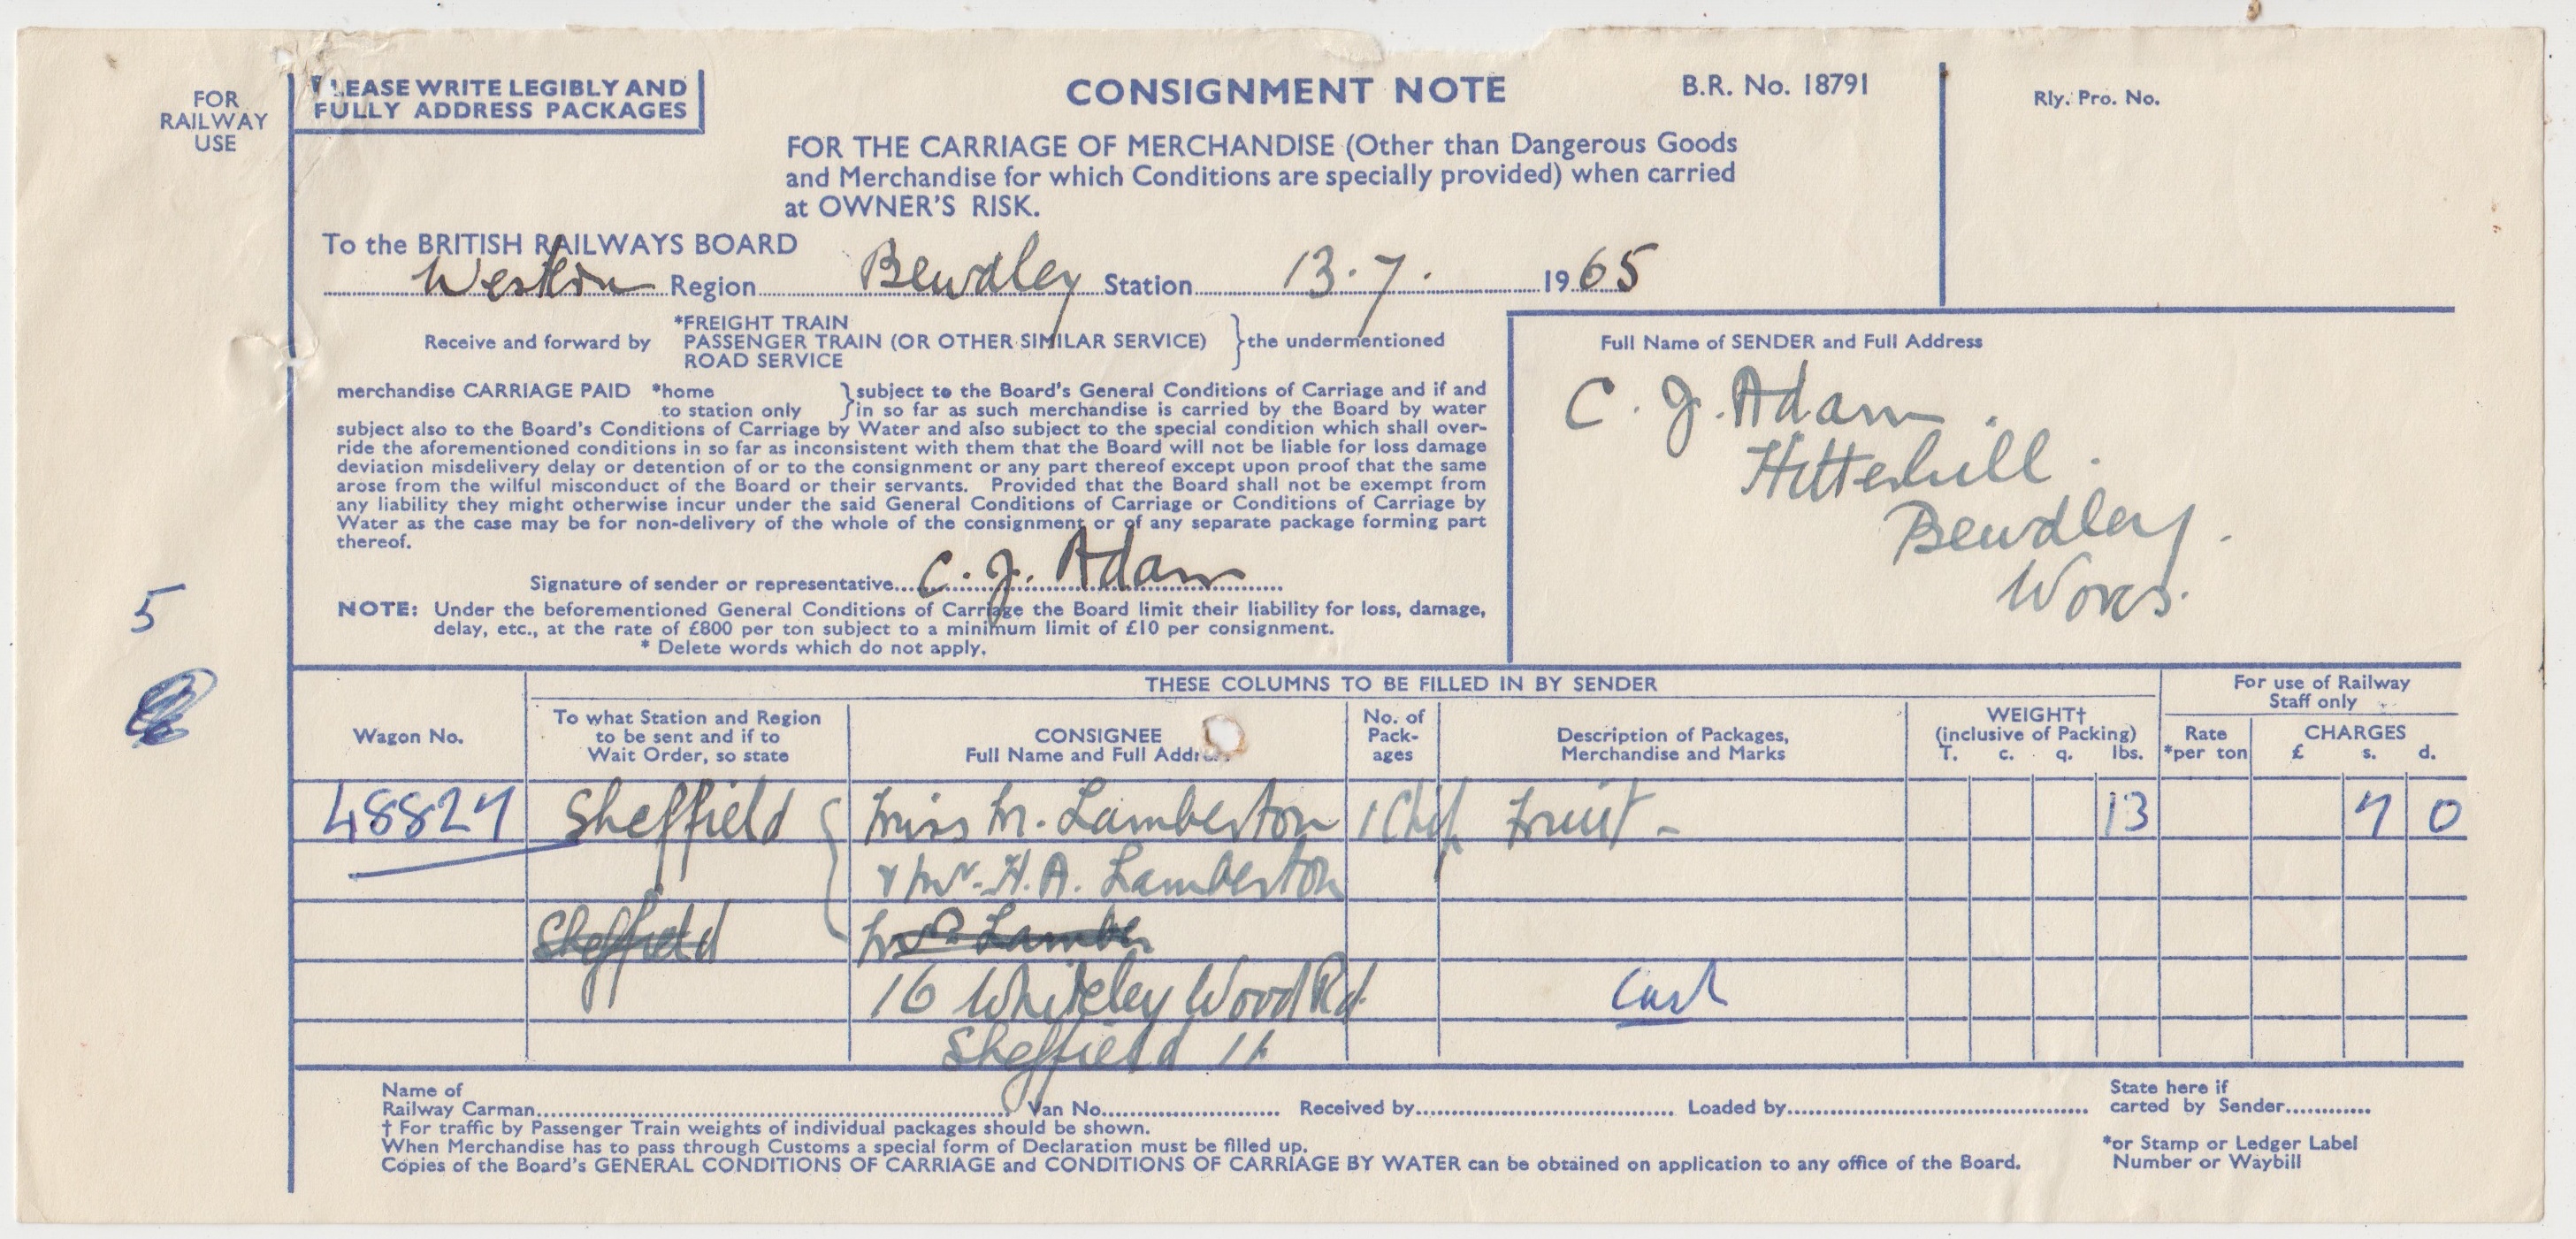 FOR
RAILWAY
USE
PLEASE WRITE LEGIBLY AND
FULLY ADDRESS PACKAGES
CONSIGNMENT NOTE
B.R. No. 18791
Rly. Pro. No.
FOR THE CARRIAGE OF MERCHANDISE (Other than Dangerous Goods
and Merchandise for which Conditions are specially provided) when carried
at OWNER'S RISK.
To the BRITISH RAILWAYS BOARD
Western Region Bewdley Station 13.7. 1965
Receive and forward by
*FREIGHT TRAIN
PASSENGER TRAIN (OR OTHER SIMILAR SERVICE)
ROAD SERVICE
the undermentioned
merchandise CARRIAGE PAID *home
to station only
subject to the Board's General Conditions of Carriage and if and
in so far as such merchandise is carried by the Board by water
subject also to the Board's Conditions of Carriage by Water and also subject to the special condition which shall over-
ride the aforementioned conditions in so far as inconsistent with them that the Board will not be liable for loss damage
deviation misdelivery delay or detention of or to the consignment or any part thereof except upon proof that the same
arose from the wilful misconduct of the Board or their servants. Provided that the Board shall not be exempt from
any liability they might otherwise incur under the said General Conditions of Carriage or Conditions of Carriage by
Water as the case may be for non-delivery of the whole of the consignment or of any separate package forming part
thereof.
Signature of sender or representative C. J. Adam
NOTE: Under the beforementioned General Conditions of Carriage the Board limit their liability for loss, damage,
delay, etc., at the rate of £800 per ton subject to a minimum limit of £10 per consignment.
* Delete words which do not apply.
Full Name of SENDER and Full Address
C. J. Adam.
Hitterhill.
Bewdley.
Worcs.
5
THESE COLUMNS TO BE FILLED IN BY SENDER
For use of Railway
Staff only
Wagon No.
To what Station and Region
to be sent and if to
Wait Order, so state
CONSIGNEE
Full Name and Full Addr
No. of
Pack-
ages
Description of Packages,
Merchandise and Marks
WEIGHT†
(inclusive of Packing)
T. c. q. lbs.
Rate
*per ton
CHARGES
£ s. d.
48827 Sheffield Miss M. Lamberton 1 Chip Fruit - 13 7 0
& Mr. H. A. Lamberton
Sheffield Mrs Lamber
16 Whiteley Wood Rd.
Cash
Sheffield 11
Name of
Railway Carman Van No. Received by Loaded by
State here if
carted by Sender
† For traffic by Passenger Train weights of individual packages should be shown.
When Merchandise has to pass through Customs a special form of Declaration must be filled up.
Copies of the Board's GENERAL CONDITIONS OF CARRIAGE and CONDITIONS OF CARRIAGE BY WATER can be obtained on application to any office of the Board.
*or Stamp or Ledger Label
Number or Waybill